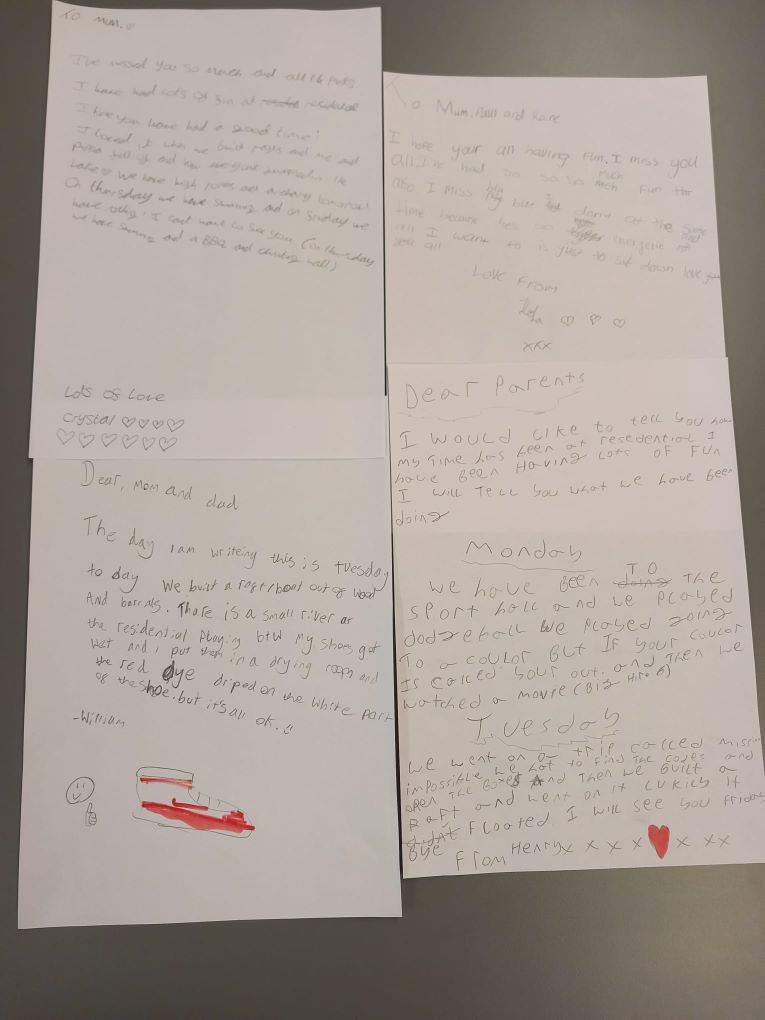 To Mum.
I've missed you so much and all the pets
I have had Lots of fun at residential
I hope you have had a good time!
I loved it when we built rafts and me and
fell off and
Lake We have high ropes and
On thursday we have swimming and on Sunday we
have I cant want to see you (on thursday
we have swimming and a BBQ and climbing wall)
Lots of Love
Crystal ♡♡♡♡
♡♡♡♡♡♡
To Mum, and
I hope your all having fun. I miss you
all I've had so so so much fun
also I miss but I dont at the same
time because hes so
all I want to is just to sit down love you
you all
Love From
♡ ♡ ♡
xxx
Dear, mom and dad
The day I am writeing this is tuesday
to day We built a raft/boat out of wood
And barrals. Thare is a small river at
the residential Playing btw my shoes got
Wet and i put them in a drying room and
the red dye driped on the white part
of the shoe. but it's all ok. :)
-William
Dear Parents
I would like to tell you how
my time has been at resedential I
have been Having Lots of Fun
I will Tell you what we have been
doing
Monday
We have been doing TO The
sport hall and we played
dodzeball We played going
To a coulor But If your coulor
Is called your out. and Then we
watched a movie (Big Hiro 6)
Tuesday
We went on a trip called missin
impossible We hat to find The codes and
open The Boxes And Then we Built a
Raft and went on it Lukily it
didnt Floated I will see you Friday
Bye From Henry x x x x ♥ x xx